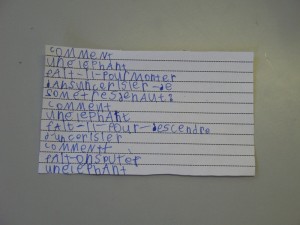 COMMENT
UNELEPHANT
FAIT-IL-POUR MONTER
DANSUNCERISIER-DE
COMMENT
UNELEPHANT
FAIT-IL-POUR-DESCENDRE
D'UNCERISIER
COMMENT
FAIT-ON
UNELEPHANT